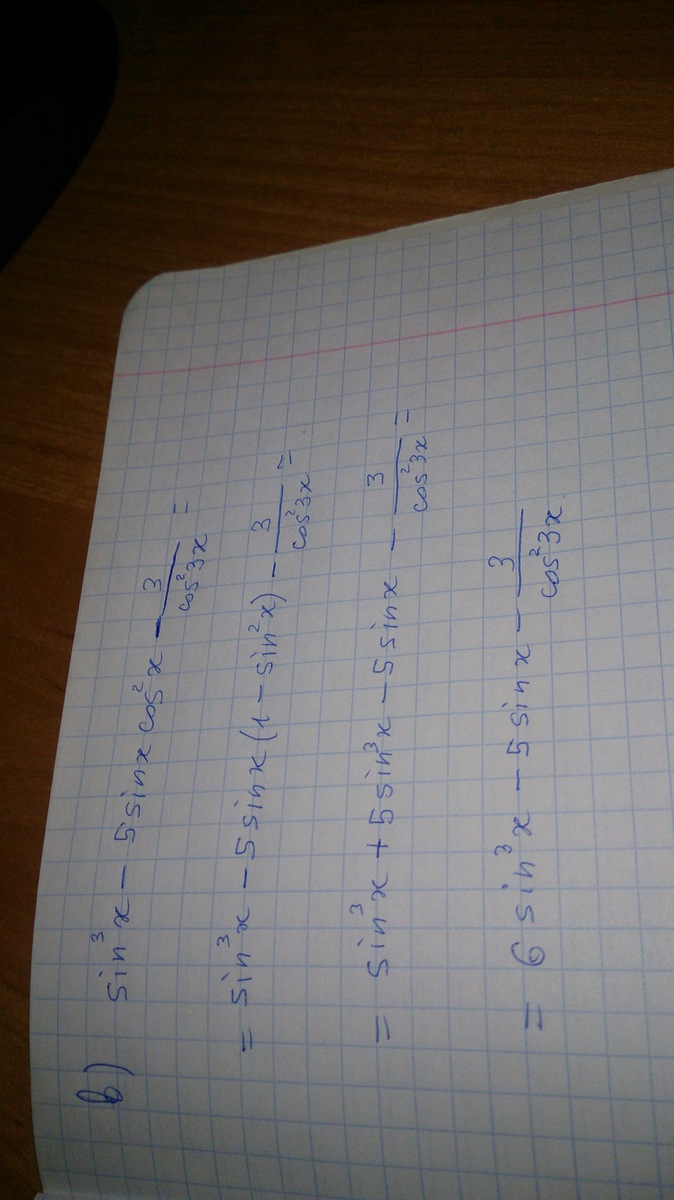 в) sin³x − 5sinx cos²x − 3/cos²3x =
= sin³x − 5sinx(1 − sin²x) − 3/cos²3x =
= sin³x + 5sin³x − 5sinx − 3/cos²3x =
= 6sin³x − 5sinx − 3/cos²3x.